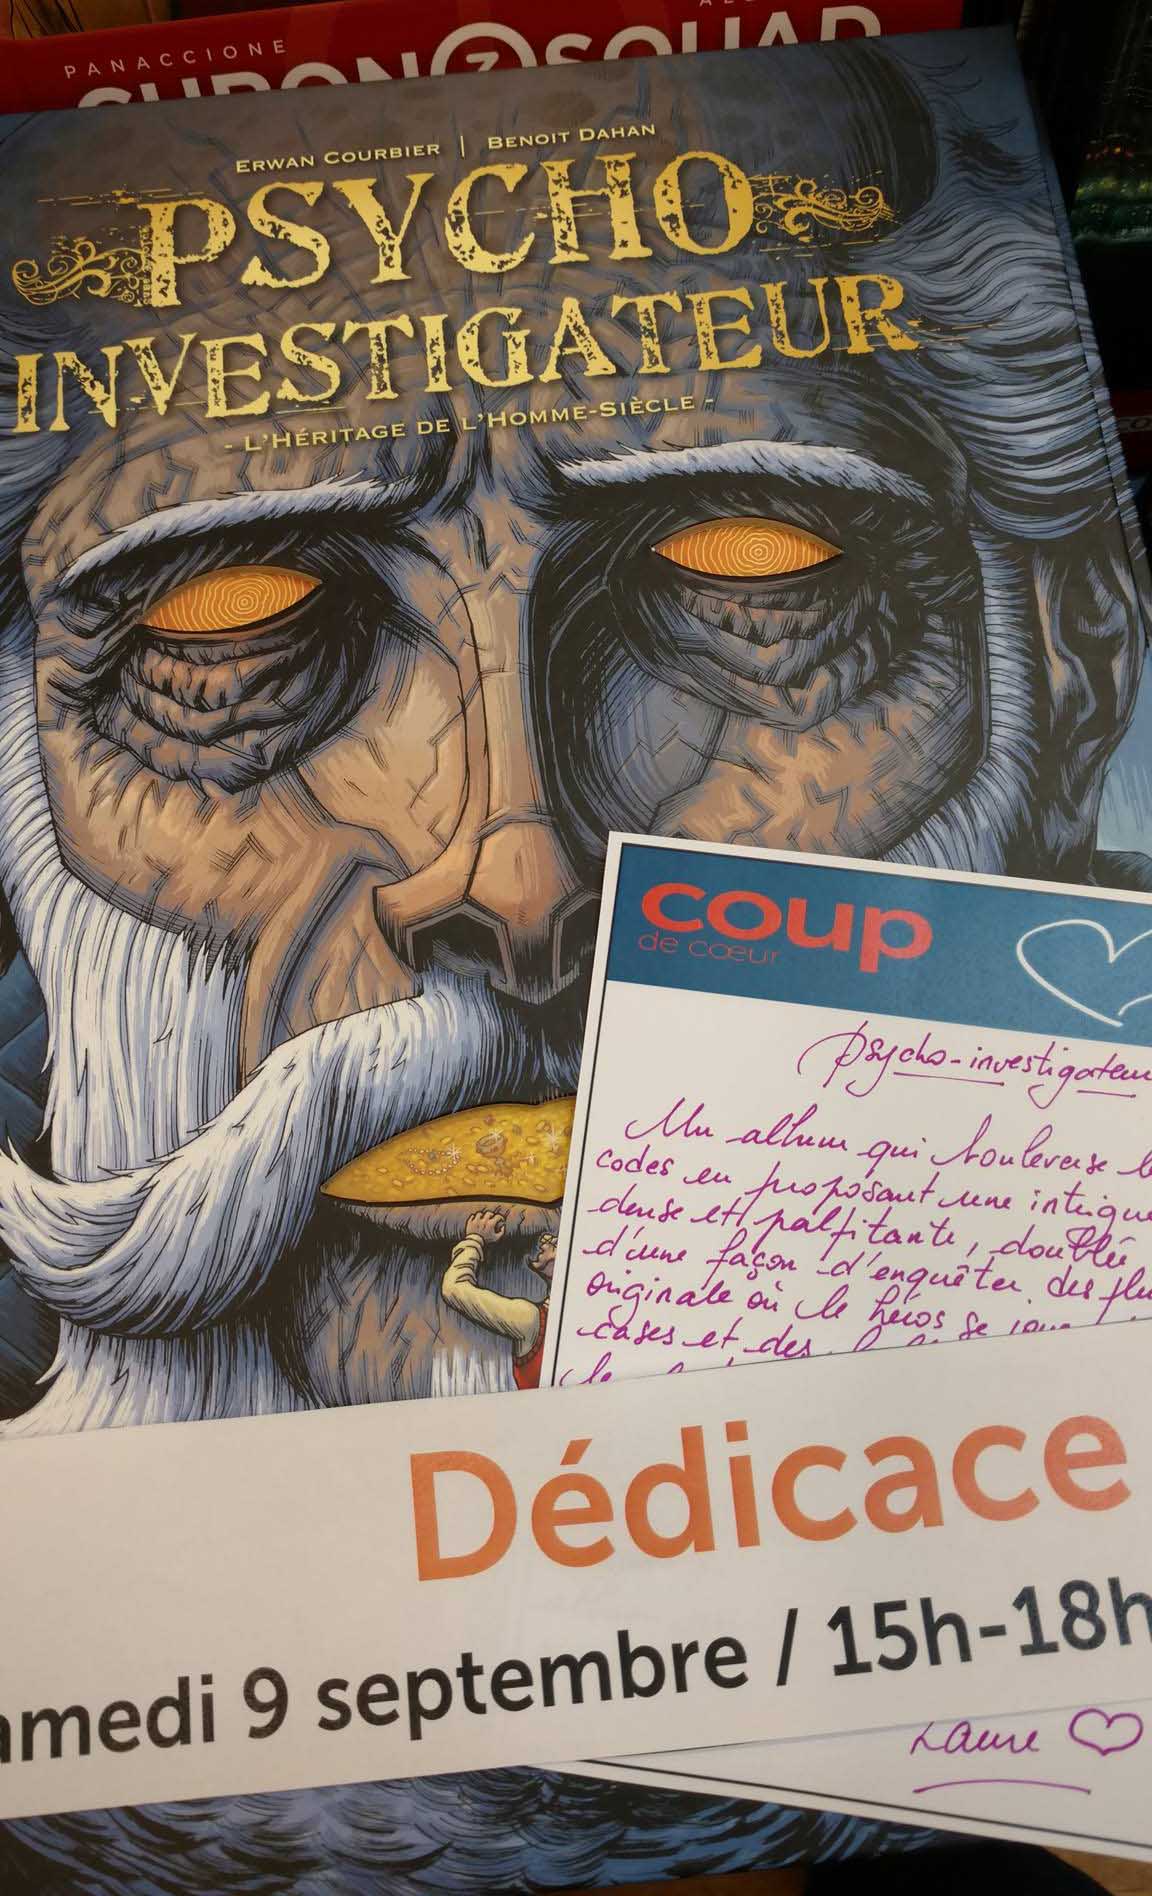 PANACCIONE
3
SQUAD
ERWAN COURBIER | BENOIT DAHAN
PSYCHO
INVESTIGATEUR
- L'HÉRITAGE DE L'HOMME-SIÈCLE -
coup
de cœur
Psycho-investigateur
Un album qui bouleverse le
codes en proposant une intrigue
dense et palpitante, doublée
d'une façon d'enquêter des plu
originale où le héros se joue
cases et des
le
Dédicace
amedi 9 septembre / 15h-18h
Laure